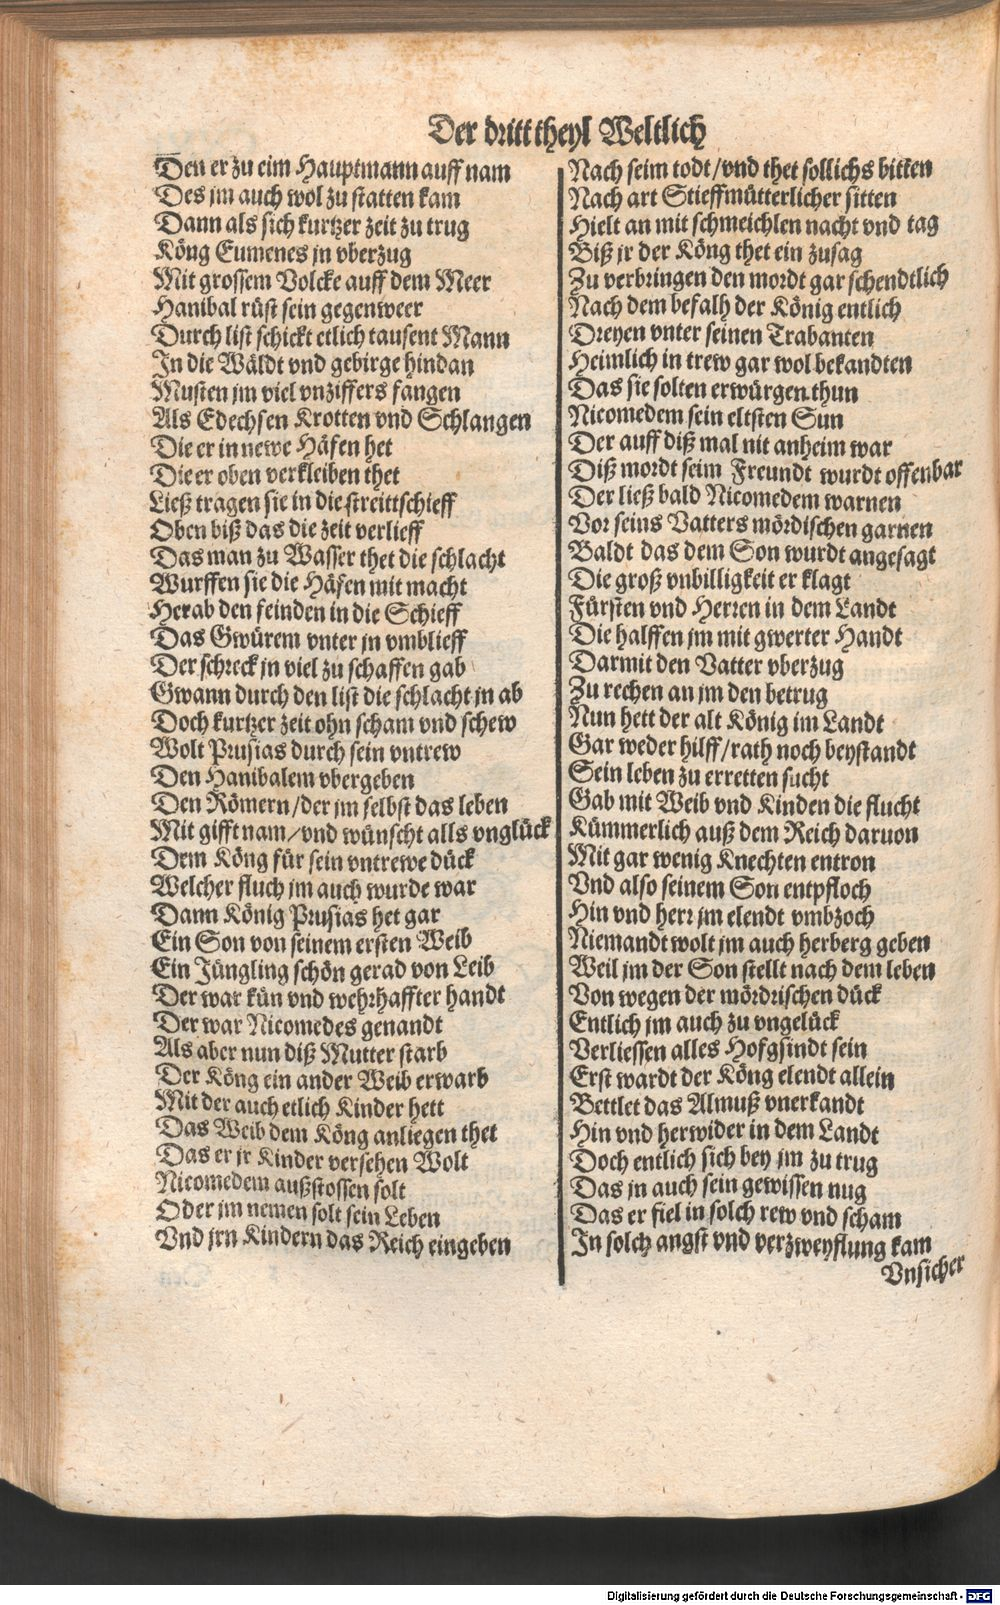 Der dritt theyl Weltlich
Den er zu eim Hauptmann auff nam
Des jm auch wol zu statten kam
Dann als sich kurtzer zeit zu trug
Köng Eumenes jn vberzug
Mit grossem Volcke auff dem Meer
Hanibal rüst sein gegenweer
Durch list schickt etlich tausent Mann
In die Wäldt vnd gebirge hindan
Musten jm viel vnziffers fangen
Als Edechsen Krotten vnd Schlangen
Die er in newe Häfen het
Die er oben verkleiben thet
Ließ tragen sie in die streittschieff
Oben biß das die zeit verlieff
Das man zu Wasser thet die schlacht
Wurffen sie die Häfen mit macht
Herab den feinden in die Schieff
Das Gwürem vnter jn vmblieff
Der schreck jn viel zu schaffen gab
Gwann durch den list die schlacht jn ab
Doch kurtzer zeit ohn scham vnd schew
Wolt Prusias durch sein vntrew
Den Hanibalem vbergeben
Den Römern/der jm selbst das leben
Mit gifft nam/vnd wünscht alls vnglück
Dem Köng für sein vntrewe dück
Welcher fluch jm auch wurde war
Dann König Prusias het gar
Ein Son von seinem ersten Weib
Ein Jüngling schön gerad von Leib
Der war kün vnd wehrhaffter handt
Der war Nicomedes genandt
Als aber nun diß Mutter starb
Der Köng ein ander Weib erwarb
Mit der auch etlich Kinder hett
Das Weib dem Köng anliegen thet
Das er jr Kinder versehen Wolt
Nicomedem außstossen solt
Oder jm nemen solt sein Leben
Vnd jrn Kindern das Reich eingeben
Nach seim todt/vnd thet sollichs bitten
Nach art Stieffmütterlicher sitten
Hielt an mit schmeichlen nacht vnd tag
Biß jr der Köng thet ein zusag
Zu verbringen den mordt gar schendtlich
Nach dem befalh der König entlich
Dreyen vnter seinen Trabanten
Heimlich in trew gar wol bekandten
Das sie solten erwürgen thun
Nicomedem sein eltsten Sun
Der auff diß mal nit anheim war
Diß mordt seim Freundt wurdt offenbar
Der ließ bald Nicomedem warnen
Vor seins Vatters mördischen garnen
Baldt das dem Son wurdt angesagt
Die groß vnbilligkeit er klagt
Fürsten vnd Herren in dem Landt
Die halffen jm mit gwerter Handt
Darmit den Vatter vberzug
Zu rechen an jm den betrug
Nun hett der alt König im Landt
Gar weder hilff/rath noch beystandt
Sein leben zu erretten sucht
Gab mit Weib vnd Kinden die flucht
Kümmerlich auß dem Reich daruon
Mit gar wenig Knechten entron
Vnd also seinem Son entpfloch
Hin vnd herr jm elendt vmbzoch
Niemandt wolt jm auch herberg geben
Weil jm der Son stellt nach dem leben
Von wegen der mördrischen dück
Entlich jm auch zu vngelück
Verliessen alles Hofgsindt sein
Erst wardt der Köng elendt allein
Bettlet das Almuß vnerkandt
Hin vnd herwider in dem Landt
Doch entlich sich bey jm zu trug
Das jn auch sein gewissen nug
Das er fiel in solch rew vnd scham
In solch angst vnd verzweyflung kam
Vnsicher
Digitalisierung gefördert durch die Deutsche Forschungsgemeinschaft - DFG